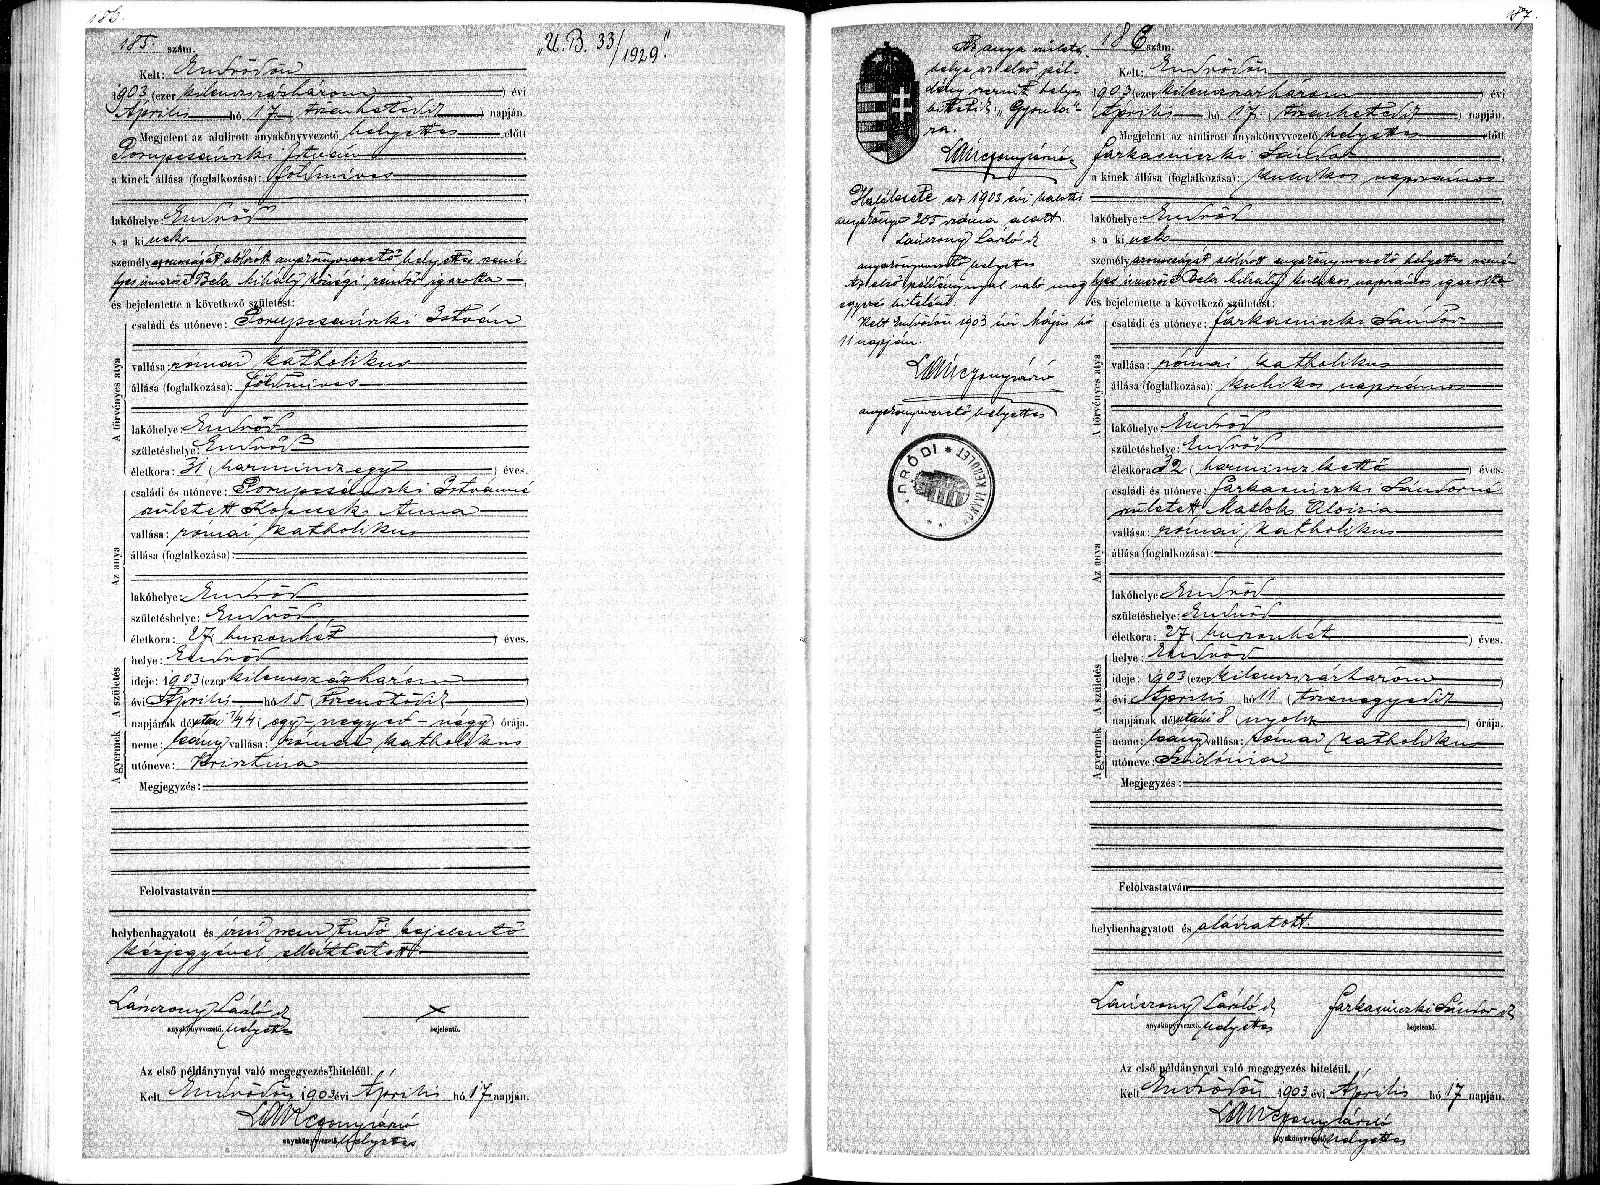 186.
185. szám.
"U.B. 33/1929."
Kelt: Endrődön
1903 (ezer kilenczszázhárom) évi
Április hó 17 (tizenhetedik) napján.
Megjelent az alulirott anyakönyvvezető helyettes előtt
István
a kinek állása (foglalkozása): földmives
lakóhelye Endrőd
s a kinek
személyazonosságát alólirott anyakönyvvezető helyettes szemé-
Bela Mihály községi rendőr igazolta —,
és bejelentette a következő születést:
A törvényes atya
családi és utóneve: István
vallása: római katholikus
állása (foglalkozása): földmives
lakóhelye Endrőd
születéshelye: Endrőd
életkora: 31 (harminczegy) éves.
Az anya
családi és utóneve: Istvánné
született Anna
vallása: római katholikus
állása (foglalkozása):
lakóhelye: Endrőd
születéshelye: Endrőd
életkora: 27 (huszonhét) éves.
A születés
helye: Endrőd
ideje: 1903 (ezer kilenczszázhárom)
évi Április hó 15 (tizenötödik)
napjának délután 1/4 4 (egy-negyed-négy) órája.
A gyermek
neme: leány vallása: római katholikus
utóneve: Krisztina
Megjegyzés:
Felolvastatván
helybenhagyatott és irni nem tudó bejelentő
kézjegyével elláttatott
Lánczony László x
anyakönyvvezető. helyettes bejelentő.
Az első példánynyal való megegyezés hiteléül.
Kelt Endrődön 1903 évi Április hó 17 napján.
anyakönyvvezető helyettes
187.
Az anya születés
helye az első pél-
dány szerint helyes-
bittetik: "Gyomá-
ra.
Halálesete az 1903 évi halotti
anyakönyv 205 száma alatt.
Lánczony László
anyakönyvvezető helyettes
Az első példánynyal való meg-
egyezés hiteléül.
Kelt Endrődön 1903 évi Május hó
11 napján.
anyakönyvvezető helyettes
186 szám.
Kelt: Endrődön
1903 (ezer kilenczszázhárom) évi
Április hó 17 (tizenhetedik) napján.
Megjelent az alulirott anyakönyvvezető helyettes előtt
Farkasinszki Sándor,
a kinek állása (foglalkozása): kubikos napszámos
lakóhelye Endrőd
s a kinek
személyazonosságát alólirott anyakönyvvezető helyettes szemé-
Bela Mihály kubikos napszámos igazolta
és bejelentette a következő születést:
A törvényes atya
családi és utóneve: Farkasinszki Sándor
vallása: római katholikus
állása (foglalkozása): kubikos napszámos
lakóhelye Endrőd
születéshelye: Endrőd
életkora 32 (harminczkettő) éves.
Az anya
családi és utóneve: Farkasinszki Sándorné
született Aloizia
vallása: római katholikus
állása (foglalkozása):
lakóhelye Endrőd
születéshelye: Endrőd
életkora: 27 (huszonhét) éves.
A születés
helye: Endrőd
ideje: 1903 (ezer kilenczszázhárom)
évi Április hó 11 (tizenegyedik)
napjának délutáni 8 (nyolcz) órája.
A gyermek
neme: leány vallása: római katholikus
utóneve: Szidónia
Megjegyzés:
Felolvastatván
helybenhagyatott és aláiratott
Lánczony László Farkasinszki Sándor
anyakönyvvezető. helyettes bejelentő.
Az első példánynyal való megegyezés hiteléül.
Kelt Endrődön 1903 évi Április hó 17 napján.
anyakönyvvezető helyettes